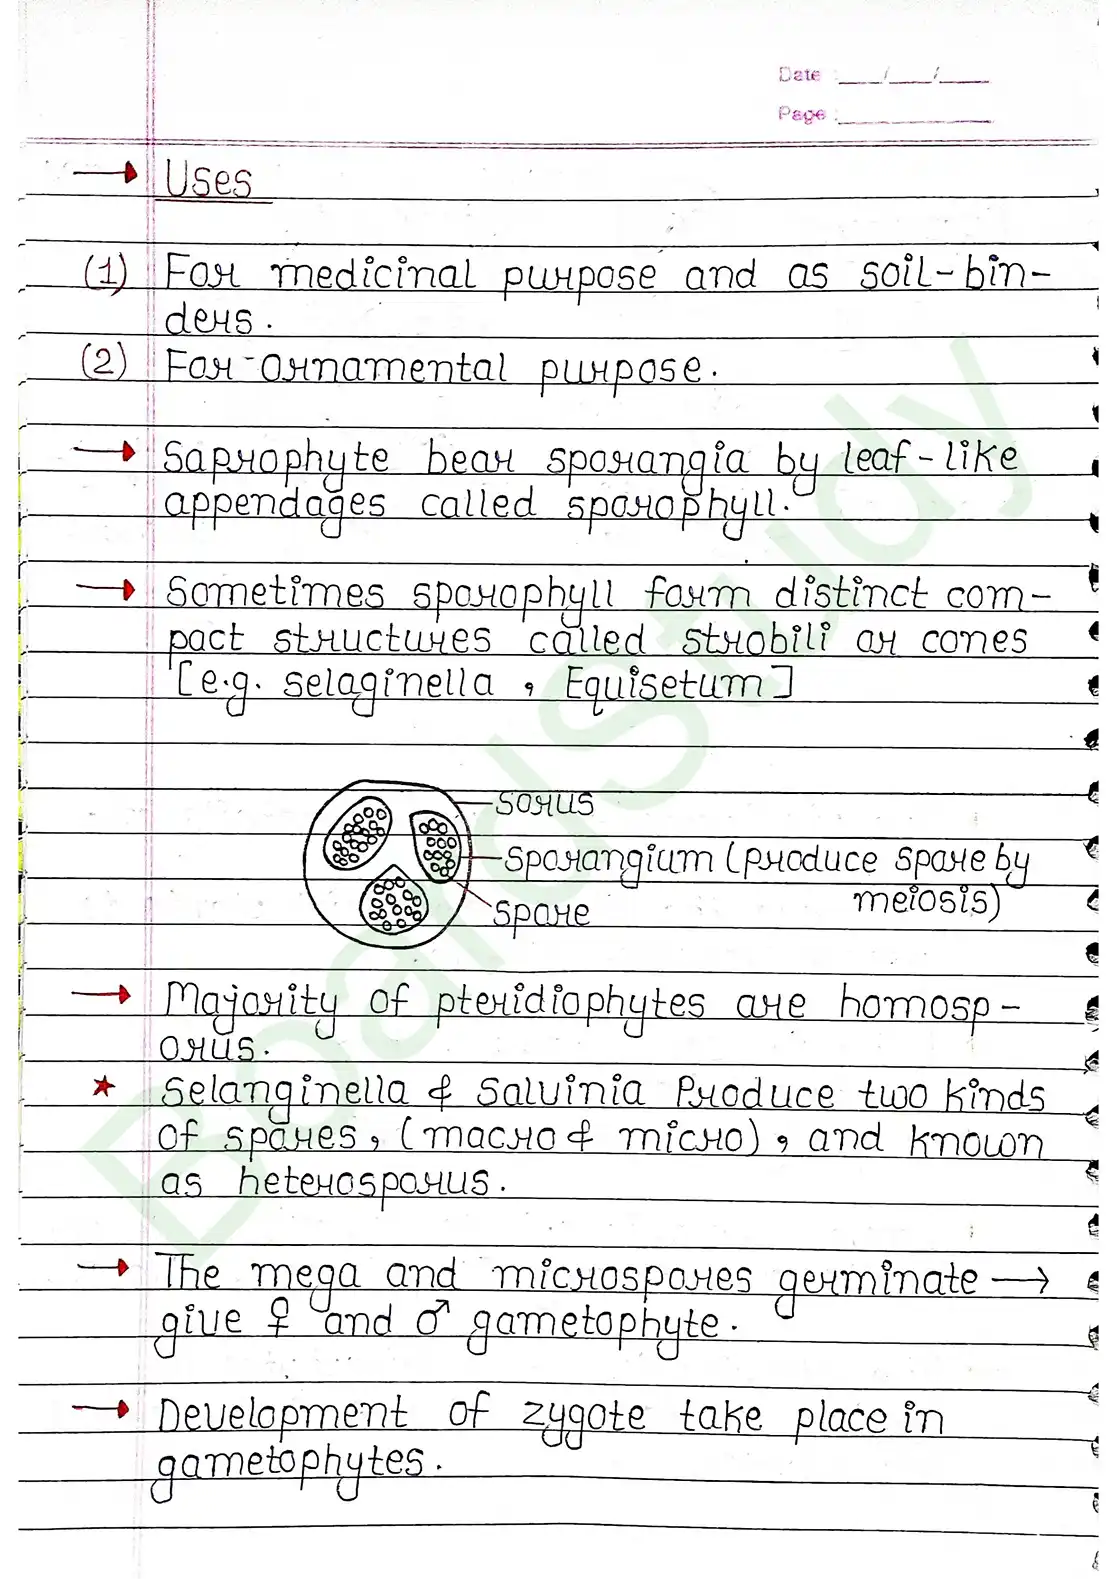 Date : __/__/__
Page : ______
→ Uses
(1) For medicinal purpose and as soil-bin-
ders.
(2) For ornamental purpose.
→ Saprophyte bear sporangia by leaf-like
appendages called sporophyll.
→ Sometimes sporophyll form distinct com-
pact structures called strobili or cones
[e.g. selaginella , Equisetum]
sorus
sporangium (produce spore by
meiosis)
spore
→ Majority of pteridiophytes are homosp-
orus.
★ Selanginella & Salvinia Produce two kinds
of spores, (macro & micro), and known
as heterosporus.
→ The mega and microspores germinate →
give ♀ and ♂ gametophyte.
→ Development of zygote take place in
gametophytes.
BoardStudy